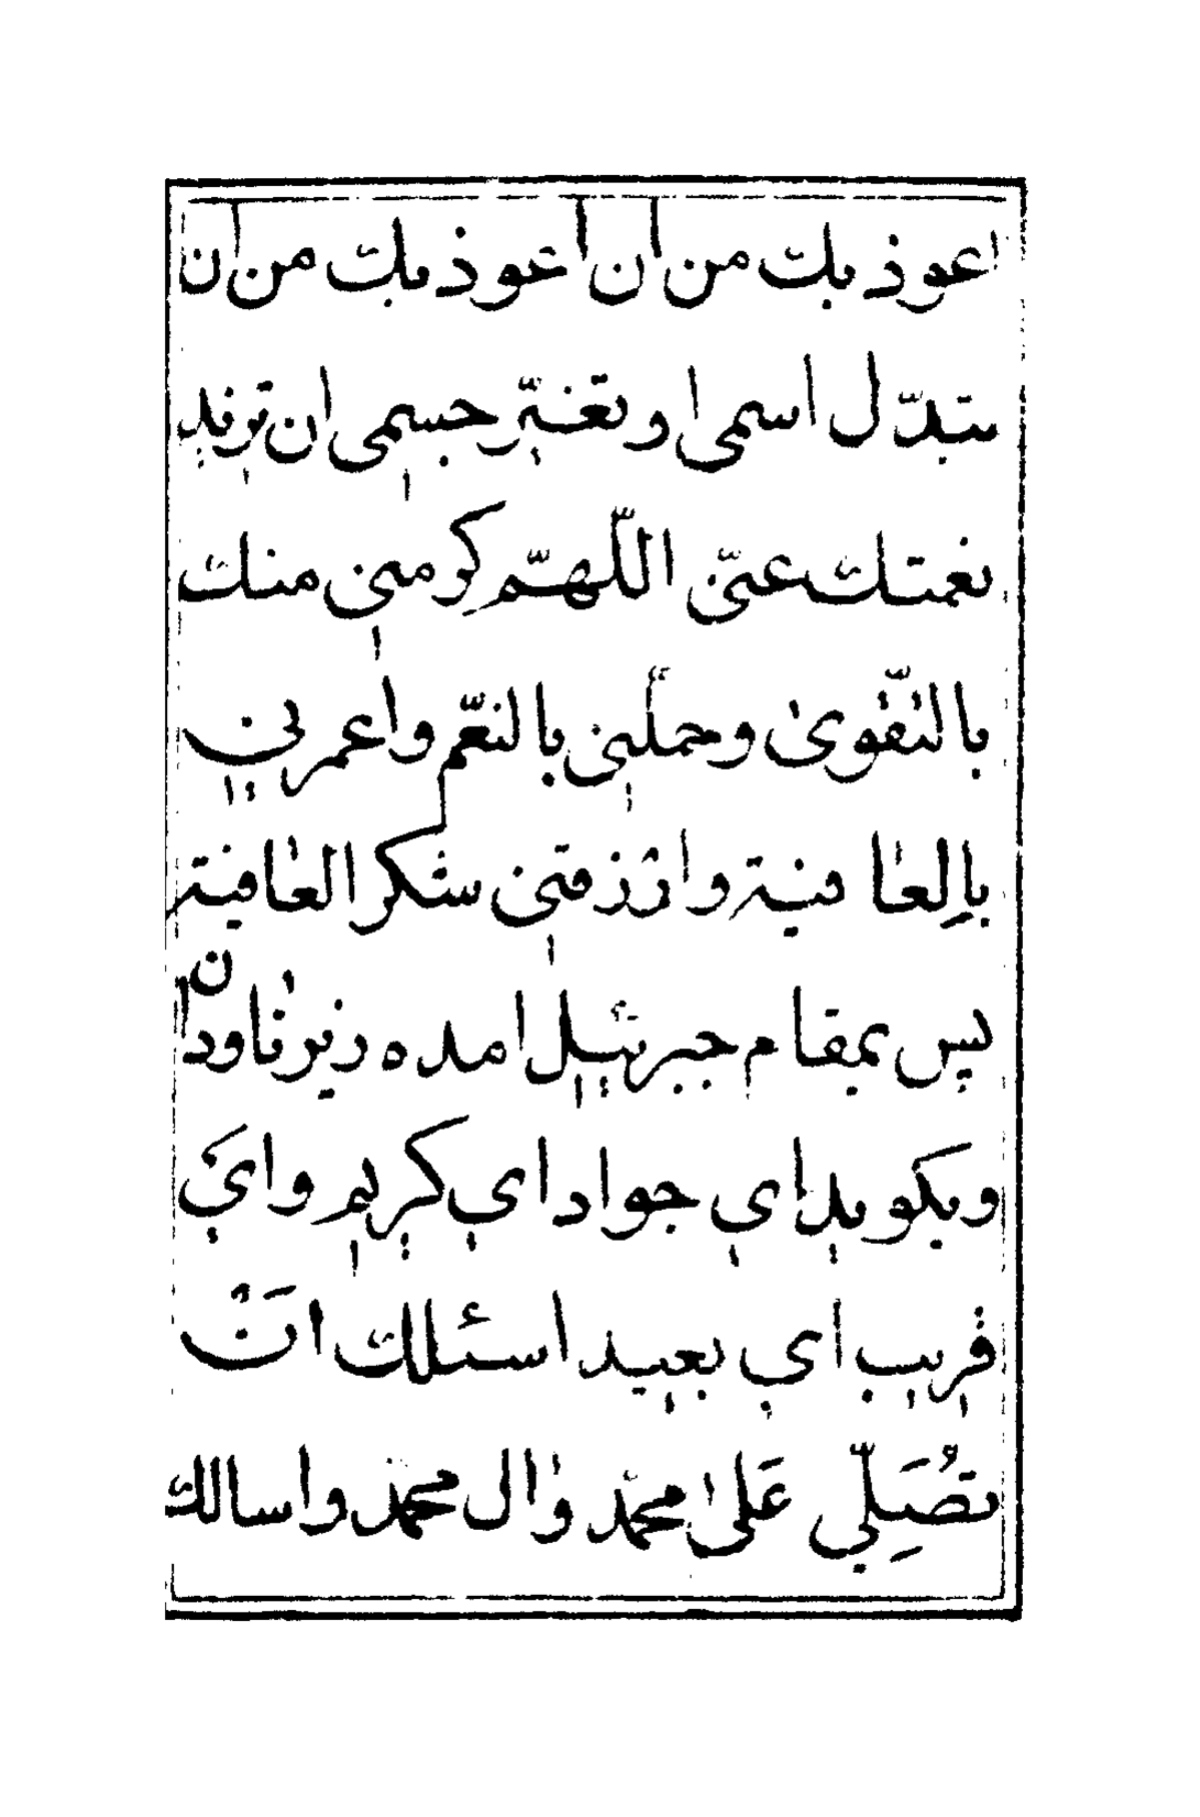 اعوذ بك من ان اعوذ بك من ان
تبدّل اسمی او تغیّر جسمی ان تزید
نعمتك عنّی اللّهمّ كرمنی منك
بالتّقویٰ و جملنی بالنعّم واعمرنی
بالِعافیة وارزقنی شكر العافیة
پس بمقام جبرئیل امده در زیر ناودان
و یكوید ای جواد ای كریم و ایَ
قریب ای بعید اسئلك انَْ
تصُلَِّی عَلیٰ محمّد واٰل محمّد واسالك